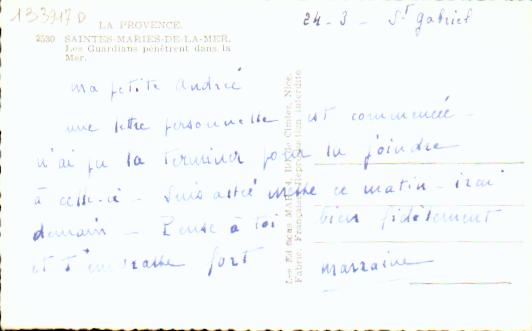 133917D
LA PROVENCE.
2530 SAINTES-MARIES-DE-LA-MER.
Les Guardians pénètrent dans la
Mer.
24-3 - St Gabriel
ma petite André
une lettre personnelle est commencée -
n'ai pu la terminer pour la joindre
à celle-ci - Suis messe ce matin - irai
demain - Pense à toi bien fidèlement
et t'embrasse fort
marraine
Les Editions MAR, de Cimiez, Nice.
Fabric. Française - Reproduction interdite